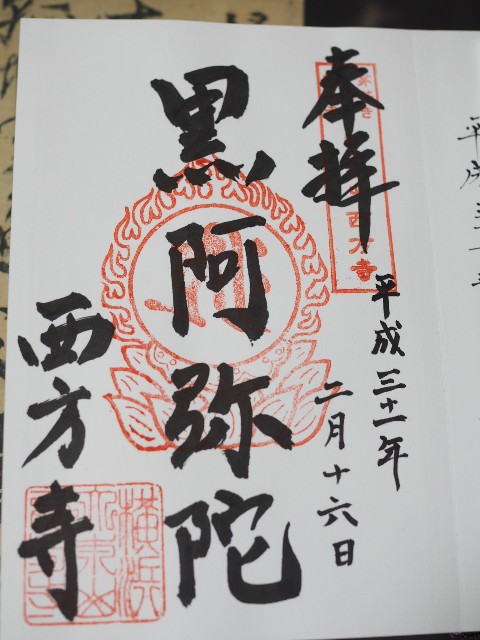 奉拝
西方寺
平成三十一年
二月十六日
黒阿弥陀
西方寺
横浜